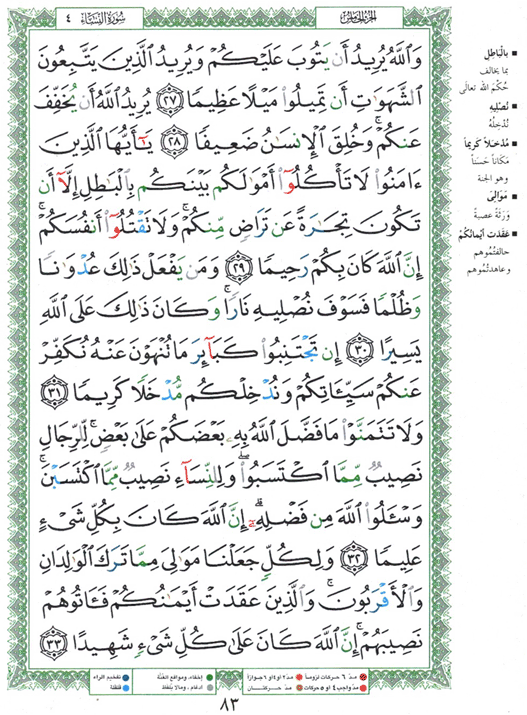 الجزء الخامس
سورة النساء ٤
وَٱللَّهُ يُرِيدُ أَن يَتُوبَ عَلَيْكُمْ وَيُرِيدُ ٱلَّذِينَ يَتَّبِعُونَ
ٱلشَّهَوَٰتِ أَن تَمِيلُوا۟ مَيْلًا عَظِيمًا ٢٧ يُرِيدُ ٱللَّهُ أَن يُخَفِّفَ
عَنكُمْ ۚ وَخُلِقَ ٱلْإِنسَٰنُ ضَعِيفًا ٢٨ يَٰٓأَيُّهَا ٱلَّذِينَ
ءَامَنُوا۟ لَا تَأْكُلُوٓا۟ أَمْوَٰلَكُم بَيْنَكُم بِٱلْبَٰطِلِ إِلَّآ أَن
تَكُونَ تِجَٰرَةً عَن تَرَاضٍ مِّنكُمْ ۚ وَلَا تَقْتُلُوٓا۟ أَنفُسَكُمْ ۚ
إِنَّ ٱللَّهَ كَانَ بِكُمْ رَحِيمًا ٢٩ وَمَن يَفْعَلْ ذَٰلِكَ عُدْوَٰنًا
وَظُلْمًا فَسَوْفَ نُصْلِيهِ نَارًا ۚ وَكَانَ ذَٰلِكَ عَلَى ٱللَّهِ
يَسِيرًا ٣٠ إِن تَجْتَنِبُوا۟ كَبَآئِرَ مَا تُنْهَوْنَ عَنْهُ نُكَفِّرْ
عَنكُمْ سَيِّـَٔاتِكُمْ وَنُدْخِلْكُم مُّدْخَلًا كَرِيمًا ٣١
وَلَا تَتَمَنَّوْا۟ مَا فَضَّلَ ٱللَّهُ بِهِۦ بَعْضَكُمْ عَلَىٰ بَعْضٍ ۚ لِّلرِّجَالِ
نَصِيبٌ مِّمَّا ٱكْتَسَبُوا۟ ۖ وَلِلنِّسَآءِ نَصِيبٌ مِّمَّا ٱكْتَسَبْنَ ۚ
وَسْـَٔلُوا۟ ٱللَّهَ مِن فَضْلِهِۦٓ ۗ إِنَّ ٱللَّهَ كَانَ بِكُلِّ شَىْءٍ
عَلِيمًا ٣٢ وَلِكُلٍّ جَعَلْنَا مَوَٰلِىَ مِمَّا تَرَكَ ٱلْوَٰلِدَانِ
وَٱلْأَقْرَبُونَ ۚ وَٱلَّذِينَ عَقَدَتْ أَيْمَٰنُكُمْ فَـَٔاتُوهُمْ
نَصِيبَهُمْ ۚ إِنَّ ٱللَّهَ كَانَ عَلَىٰ كُلِّ شَىْءٍ شَهِيدًا ٣٣
بالباطل
بما يخالف
حُكمَ الله تعالى
نُصليهِ
نُدخِلُهُ
مُدخلاً كريماً
مكاناً حسناً
وهو الجنة
مَوَاليَ
وَرَثةً عصبةً
عَقَدت أيمانُكُمْ
حالفتُمُوهم
وعاهدتُموهم
مدّ ٦ حركات لزوماً
مدّ ٢ أو ٤ أو ٦ جوازاً
إخفاء، ومواقع الغُنَّة
تفخيم الراء
مدّ واجب ٤ أو ٥ حركات
مدّ حركتان
إدغام، وما لا يُلفظ
قلقلة
٨٣